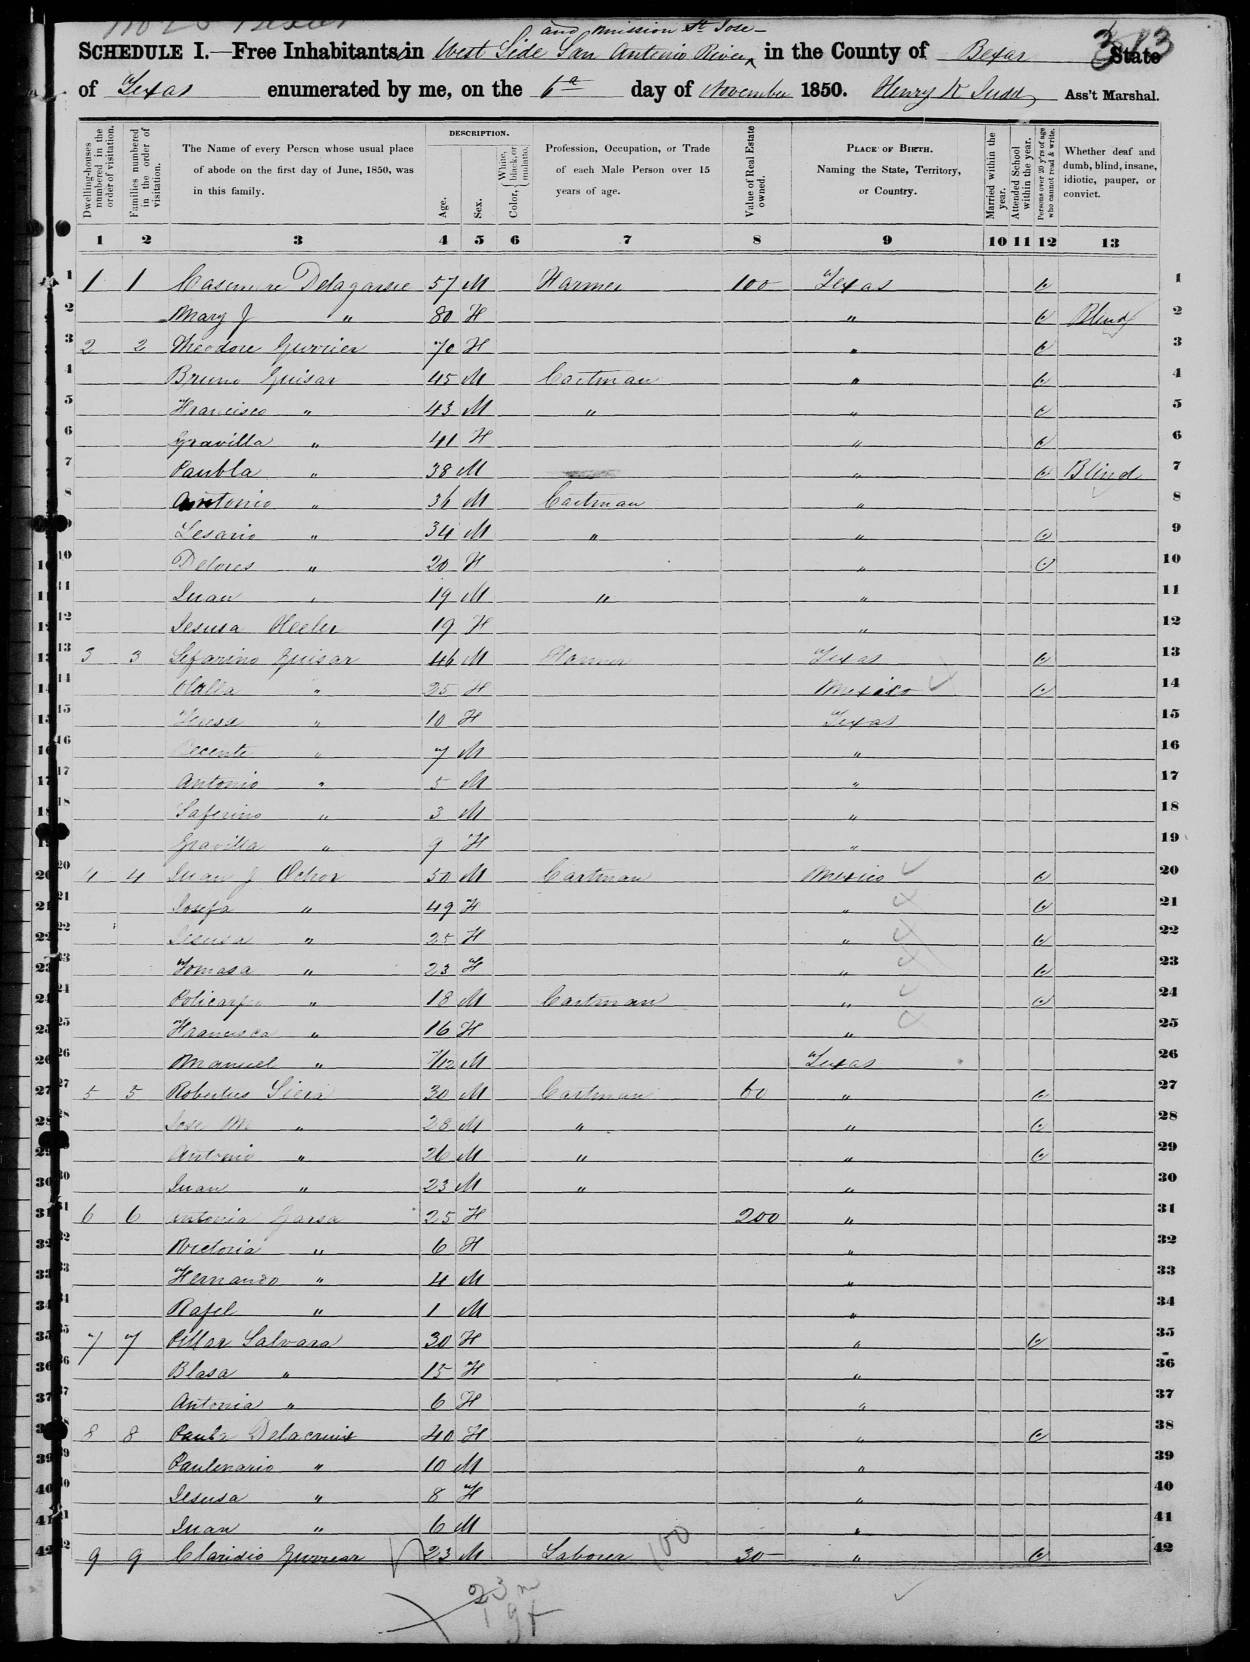 and Mission St Jose
SCHEDULE I.—Free Inhabitants in West Side San Antonio River in the County of Bexar State
373
of Texas enumerated by me, on the 6th day of November 1850. Henry K Judd Ass't Marshal.
Dwelling-houses numbered in the order of visitation.
Families numbered in the order of visitation.
The Name of every Person whose usual place of abode on the first day of June, 1850, was in this family.
DESCRIPTION.
Age.
Sex.
Color, White, black, or mulatto.
Profession, Occupation, or Trade of each Male Person over 15 years of age.
Value of Real Estate owned.
PLACE OF BIRTH. Naming the State, Territory, or Country.
Married within the year.
Attended School within the year.
Persons over 20 y'rs of age who cannot read & write.
Whether deaf and dumb, blind, insane, idiotic, pauper, or convict.
1 2 3 4 5 6 7 8 9 10 11 12 13
1 1 1 Delagarsie 57 M Farmer 100 Texas 1
2 Mary J " 80 F " Blind 2
3 2 2 Theodore Gurrier 70 F " 3
4 Bruno Guisar 45 M Cartman " 4
5 Francisco " 43 M " " 5
6 Gravilla " 41 F " 6
7 Paubla " 38 M " Blind 7
8 Antonio " 36 M Cartman " 8
9 Lesario " 34 M " " 9
10 Delores " 20 F " 10
11 Juan " 19 M " " 11
12 Jesusa 19 F " 12
13 3 3 Sefarino Guisar 46 M Farmer Texas 13
14 " 25 F Mexico 14
15 Teresa " 10 F Texas 15
16 " 7 M " 16
17 Antonio " 5 M " 17
18 Saferino " 3 M " 18
19 Gravilla " 9 F " 19
20 4 4 Juan J Ochoa 50 M Cartman Mexico 20
21 Josefa " 49 F " 21
22 Jesusa " 25 F " 22
23 Tomasa " 23 F " 23
24 Policarpo " 18 M Cartman " 24
25 Francisca " 16 F " 25
26 Manuel " M Texas 26
27 5 5 Robertus 30 M Cartman 60 " 27
28 Jose M " 28 M " " 28
29 Antonio " 26 M " " 29
30 Juan " 23 M " " 30
31 6 6 Antonia Garsa 25 F 200 " 31
32 Victoria " 6 F " 32
33 Fernando " 4 M " 33
34 Rafel " 1 M " 34
35 7 7 Pillar Salvara 30 F " 35
36 Blasa " 15 F " 36
37 Antonia " 6 F " 37
38 8 8 Paula Delacruix 40 F " 38
39 Paulinario " 10 M " 39
40 Jesusa " 8 F " 40
41 Juan " 6 M " 41
42 9 9 Claridio Gurriear 23 M Laborer 100 30 " 42
23 m
19 f